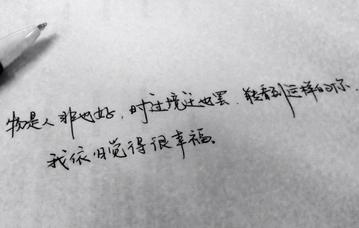 物是人非也好,时过境迁也罢,能看到这样的你,
我依旧觉得很幸福。